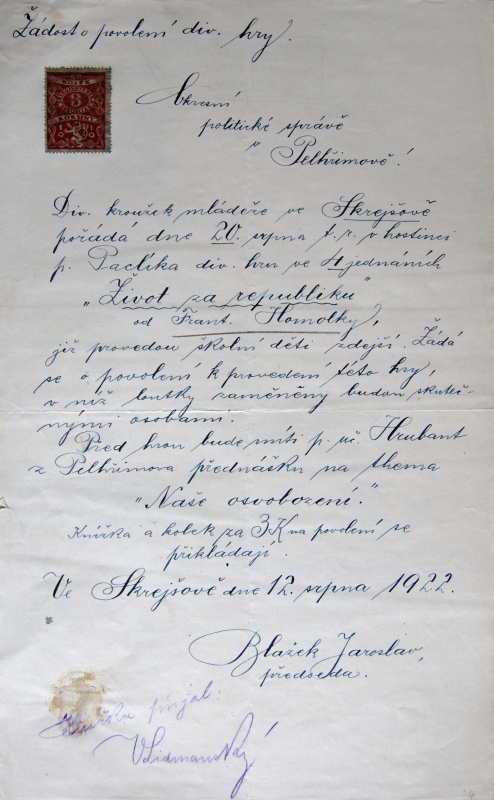 Žádost o povolení div. hry.
KOLEK
3
KORUNY
Okresní
politické správě
v
Pelhřimově!
Div. kroužek mládeže ve Skrejšově
pořádá dne 20. srpna t. r. v hostinci
p. Paclíka div. hru ve 4 jednáních
„Život za republiku"
od Frant. Homolky,
již provedou školní děti zdejší. Žádá
se o povolení k provedení této hry,
v níž loutky zaměněny budou skuteč-
nými osobami.
Před hrou bude míti p. uč. Hrubant
z Pelhřimova přednášku na thema
"Naše osvobození."
Knížka a kolek za 3 K na povolení se
přikládají.
Ve Skrejšově dne 12. srpna 1922.
Blažek Jaroslav,
předseda.
Knížku přijal: